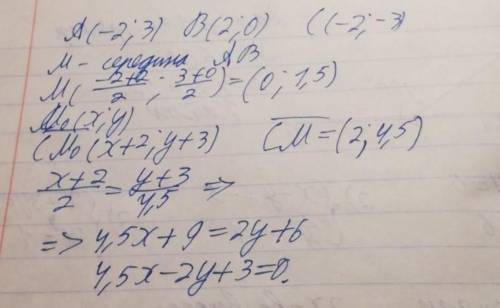 A(-2;3) B(2;0) C(-2;-3)
M - середина AB
M(\frac{-2+2}{2};\frac{3+0}{2})=(0;1,5)
M₀(x;y)
CM₀(x+2;y+3) \overline{CM}=(2;4,5)
\frac{x+2}{2}=\frac{y+3}{4,5} =>
=> 4,5x+9=2y+6
4,5x-2y+3=0.